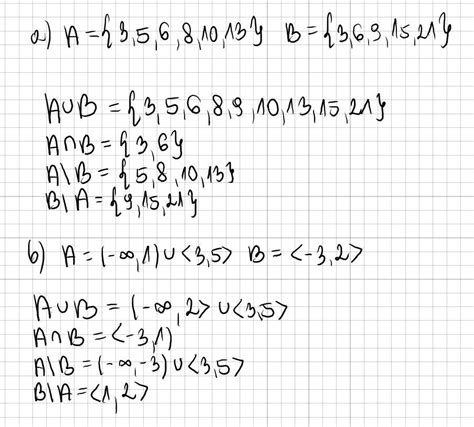 a) A = {3,5,6,8,10,13} B = {3,6,9,15,21}
A∪B = {3,5,6,8,9,10,13,15,21}
A∩B = {3,6}
A\B = {5,8,10,13}
B\A = {9,15,21}
b) A = (-∞,1) ∪ <3,5> B = <-3,2>
A∪B = (-∞,2> ∪ <3,5>
A∩B = <-3,1)
A\B = (-∞,-3) ∪ <3,5>
B\A = <1,2>